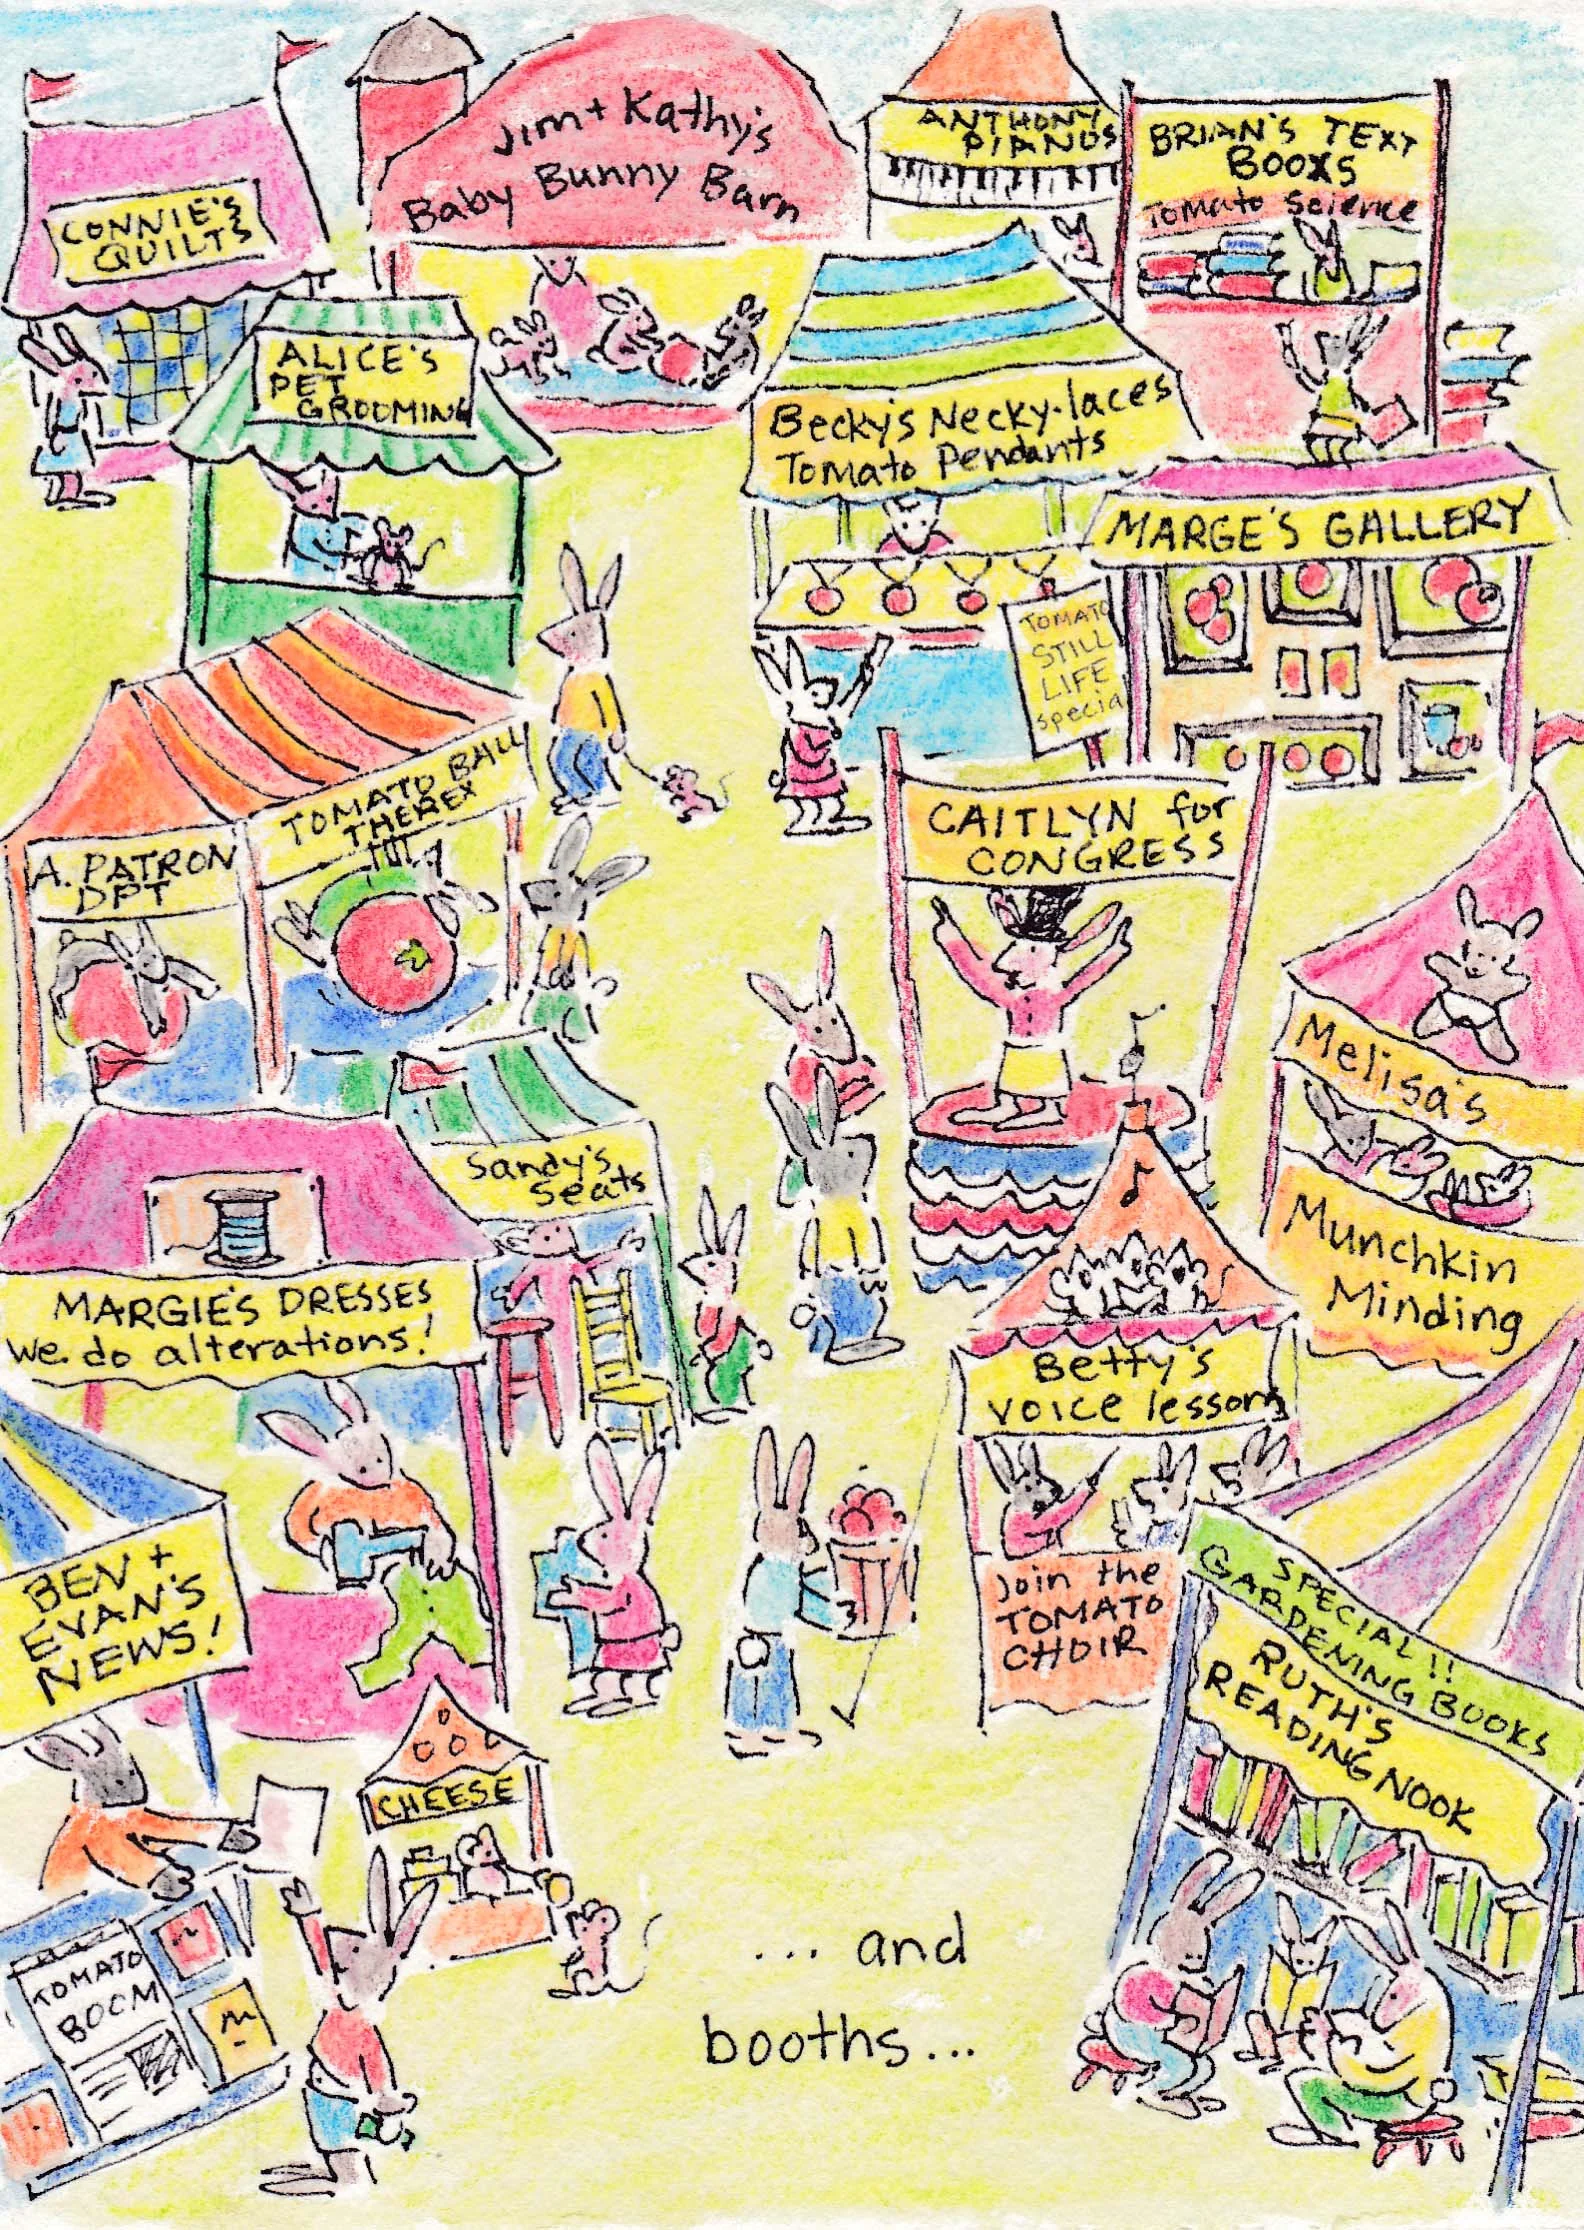 Jim + Kathy's
Baby Bunny Barn
ANTHONY
PIANOS
BRIAN'S TEXT
BOOKS
Tomato Science
CONNIE'S
QUILTS
ALICE'S
PET
GROOMING
Becky's Necky-laces
Tomato Pendants
MARGE'S GALLERY
TOMATO
STILL
LIFE
special
TOMATO BALL
THEREX
A. PATRON
DPT
CAITLYN for
CONGRESS
Melisa's
Munchkin
Minding
Sandy's
Seats
MARGIE'S DRESSES
We do alterations!
Betty's
VOICE lessons
Join the
TOMATO
CHOIR
BEN +
EVAN'S
NEWS!
SPECIAL!!
GARDENING BOOKS
RUTH'S
READING NOOK
CHEESE
TOMATO
BOOM
... and
booths...